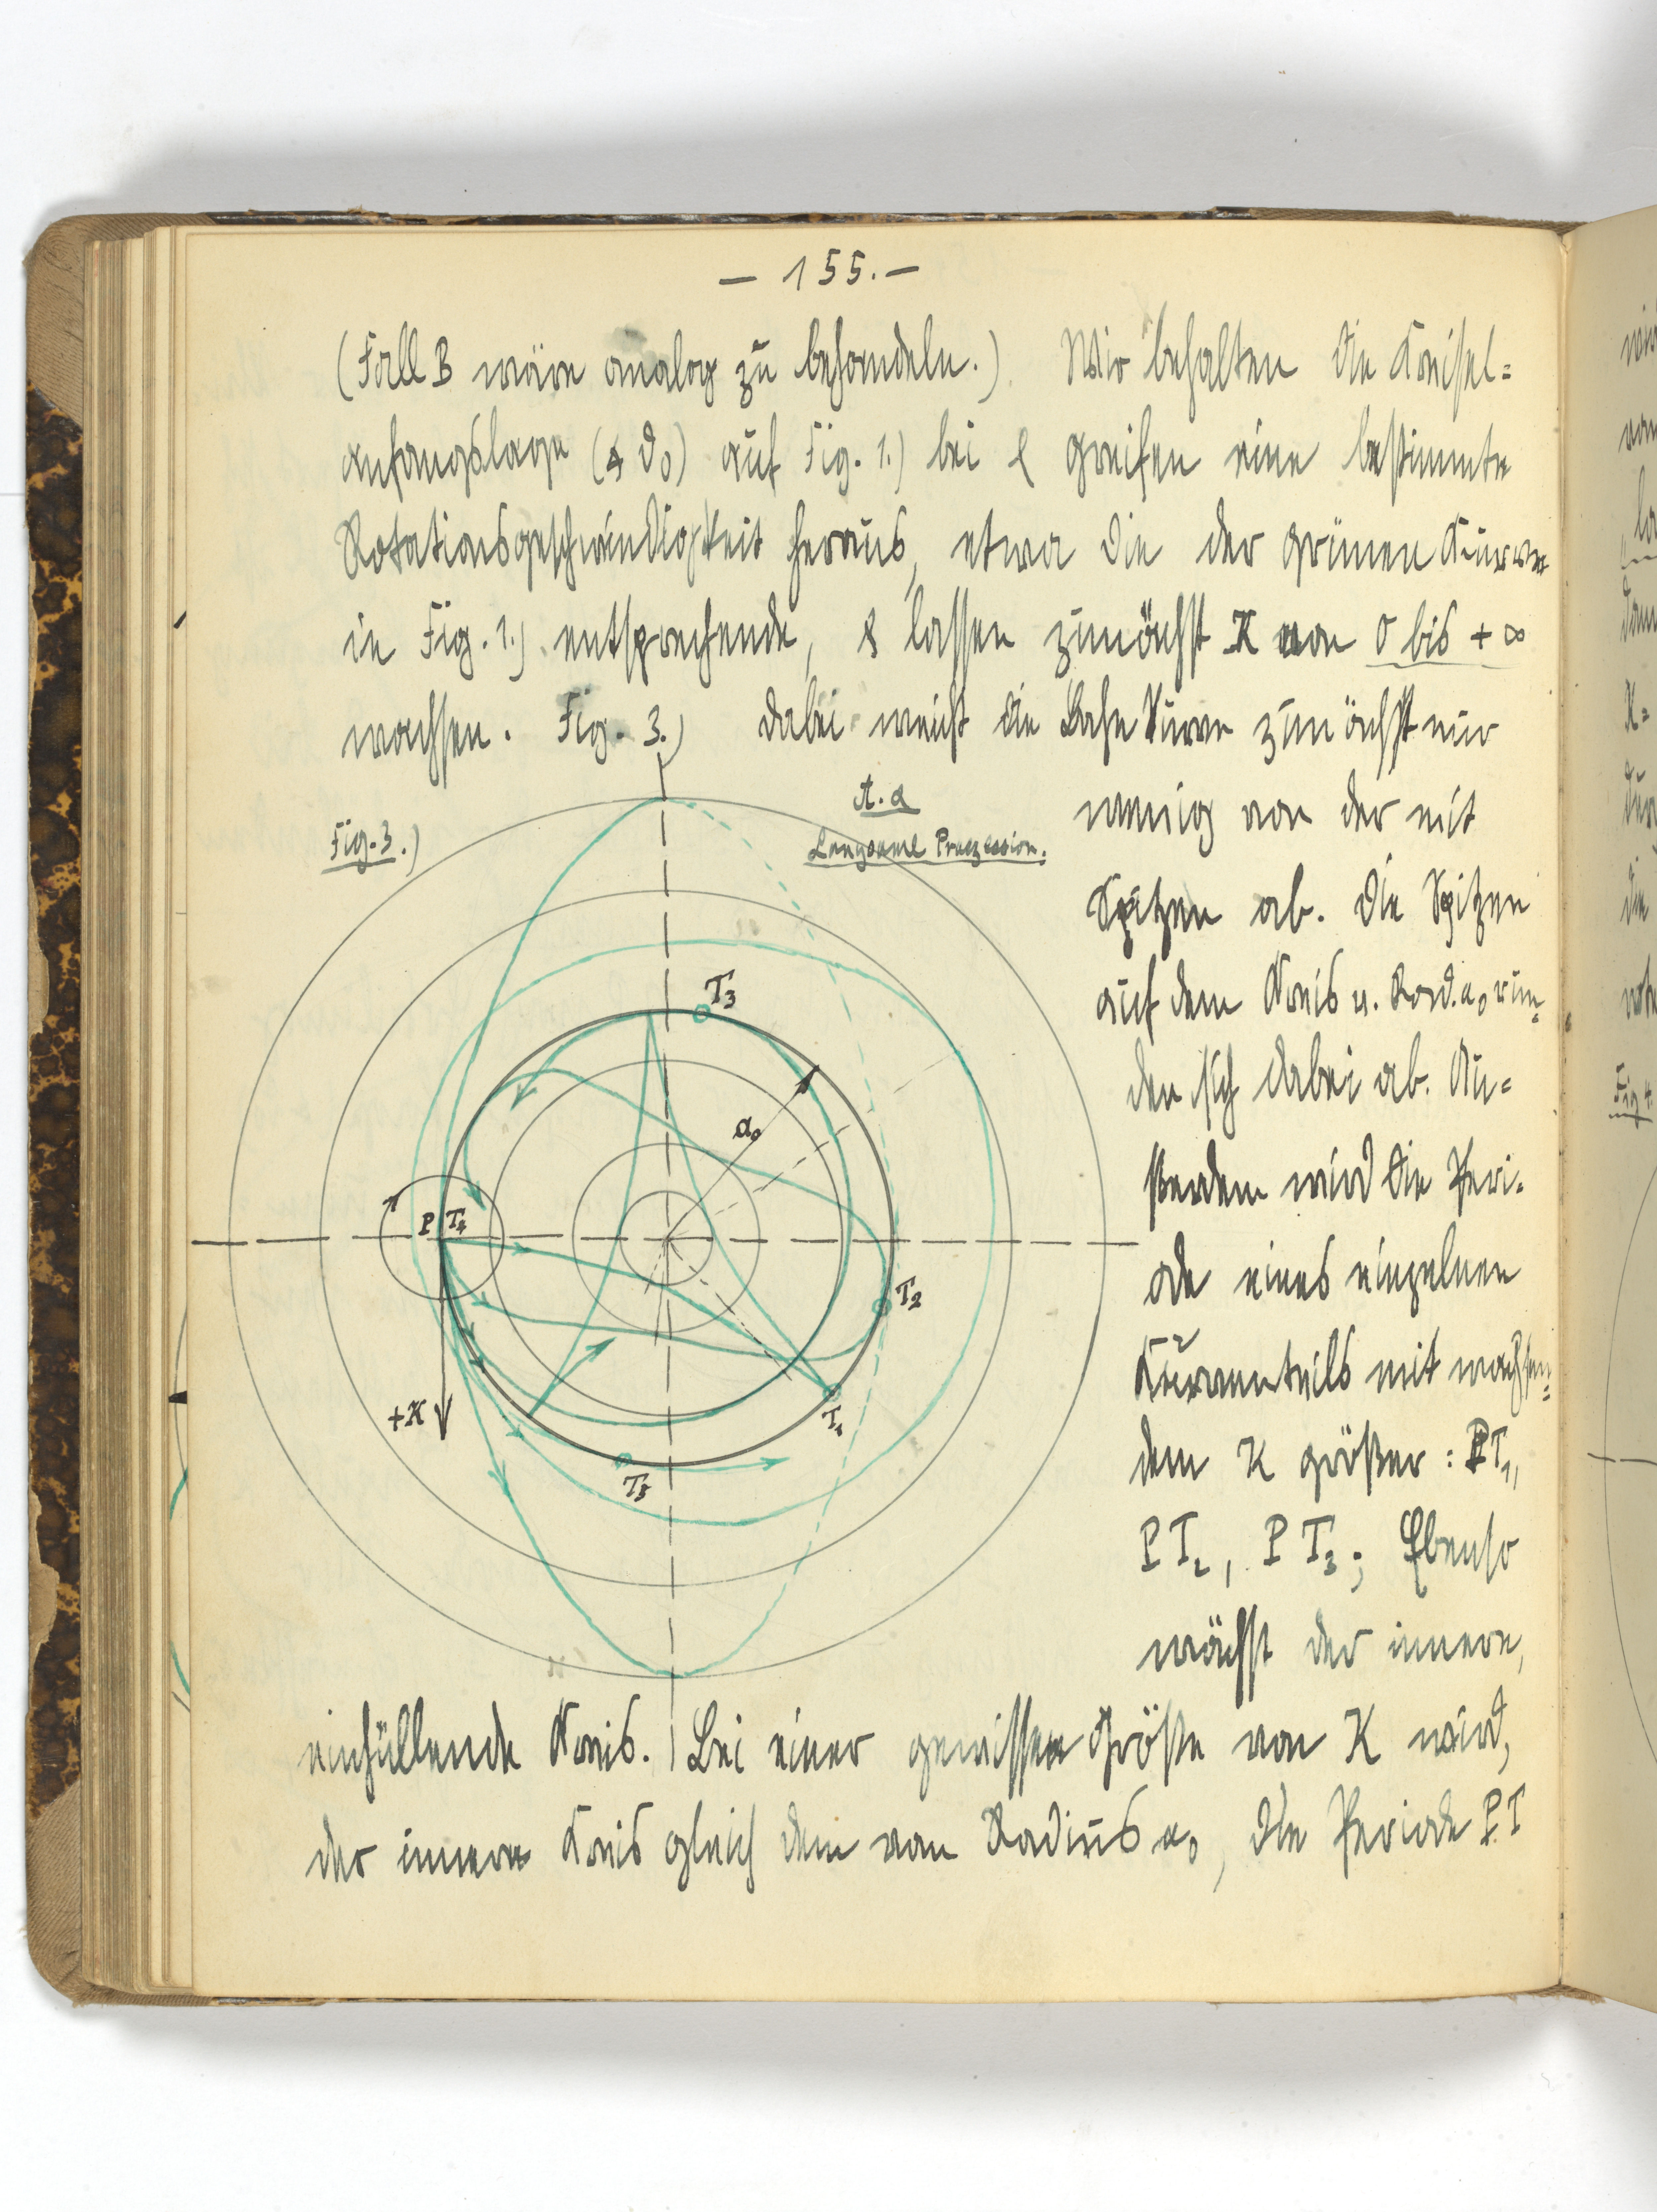 — 155. —
(Fall B wäre analog zu behandeln.) Wir behalten die Kreisel=
anfangslage (∢ ϑ₀) auf Fig. 1.) bei & greifen eine bestimmte
Rotationsgeschwindigkeit heraus, etwa die der grünen Kurve
in Fig. 1.) entsprechende, & lassen zunächst K von 0 bis + ∞
wachsen. Fig. 3.) Dabei weicht die Bahnkurve zunächst nur
wenig von der mit
Spitzen ab. Die Spitzen
auf dem Kreis u. Rad. a₀ run=
den sich dabei ab. Au=
sserdem wird die Peri=
ode eines einzelnen
Kurventeils mit wachsen=
dem K größer: PT₁,
PT₂, PT₃; Ebenso
wächst der innere,
einhüllende Kreis. Bei einer gewissen Größe von K wird,
der innere Kreis gleich dem vom Radius a₀, die Periode P.T
Fig. 3.)
A. a
Langsame Praezession.
T₃
a₀
P T₄
T₂
+K
T₁
T₅
Fig 4.